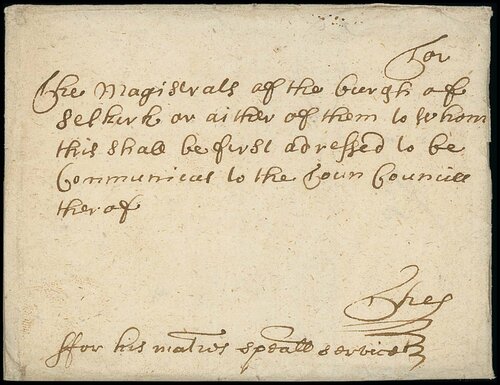 For
The Magistrats of the burgh of
Selkirk or aither of them to whom
this shall be first adressed to be
Communicat to the Toun Councill
therof
Thes
ffor his maties speall service